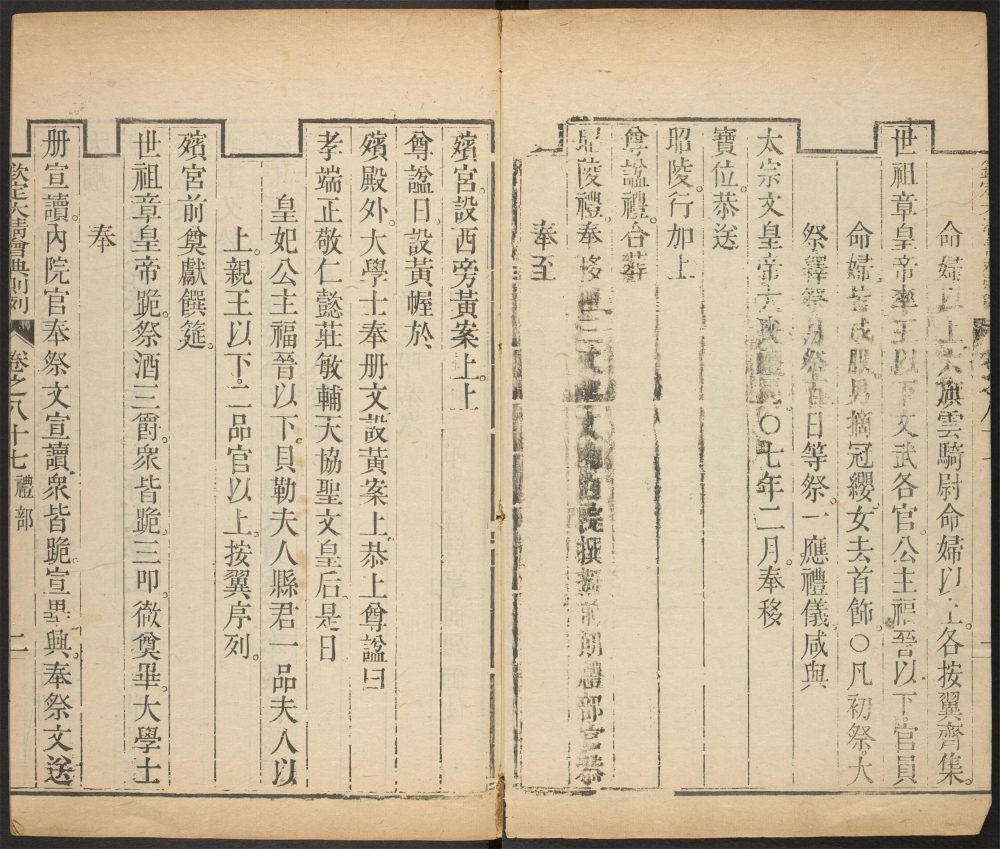 命婦以上六旗雲騎尉命婦以上各按翼齊集。
世祖章皇帝率王以下文武各官公主福晉以下官員
命婦皆成服男摘冠纓女去首飾〇凡初祭大
祭繹祭月祭百日等祭一應禮儀咸與
太宗文皇帝大喪禮同〇七年二月奉移
寶位恭送
昭陵行加上
尊諡禮合葬
昭陵禮奉移
奉至
殯宮設西旁黃案上上
尊諡日設黃幄於
殯殿外大學士奉册文設黃案上恭上尊諡曰
孝端正敬仁懿莊敏輔天協聖文皇后是日
皇妃公主福晉以下貝勒夫人縣君一品夫人以
上親王以下二品官以上按翼序列。
殯宮前奠獻饌筵。
世祖章皇帝跪祭酒三爵衆皆跪三叩徹奠畢大學士
奉
册宣讀內院官奉祭文宣讀衆皆跪宣畢興奉祭文送
欽定大清會典則例 卷之八十七 禮部 二